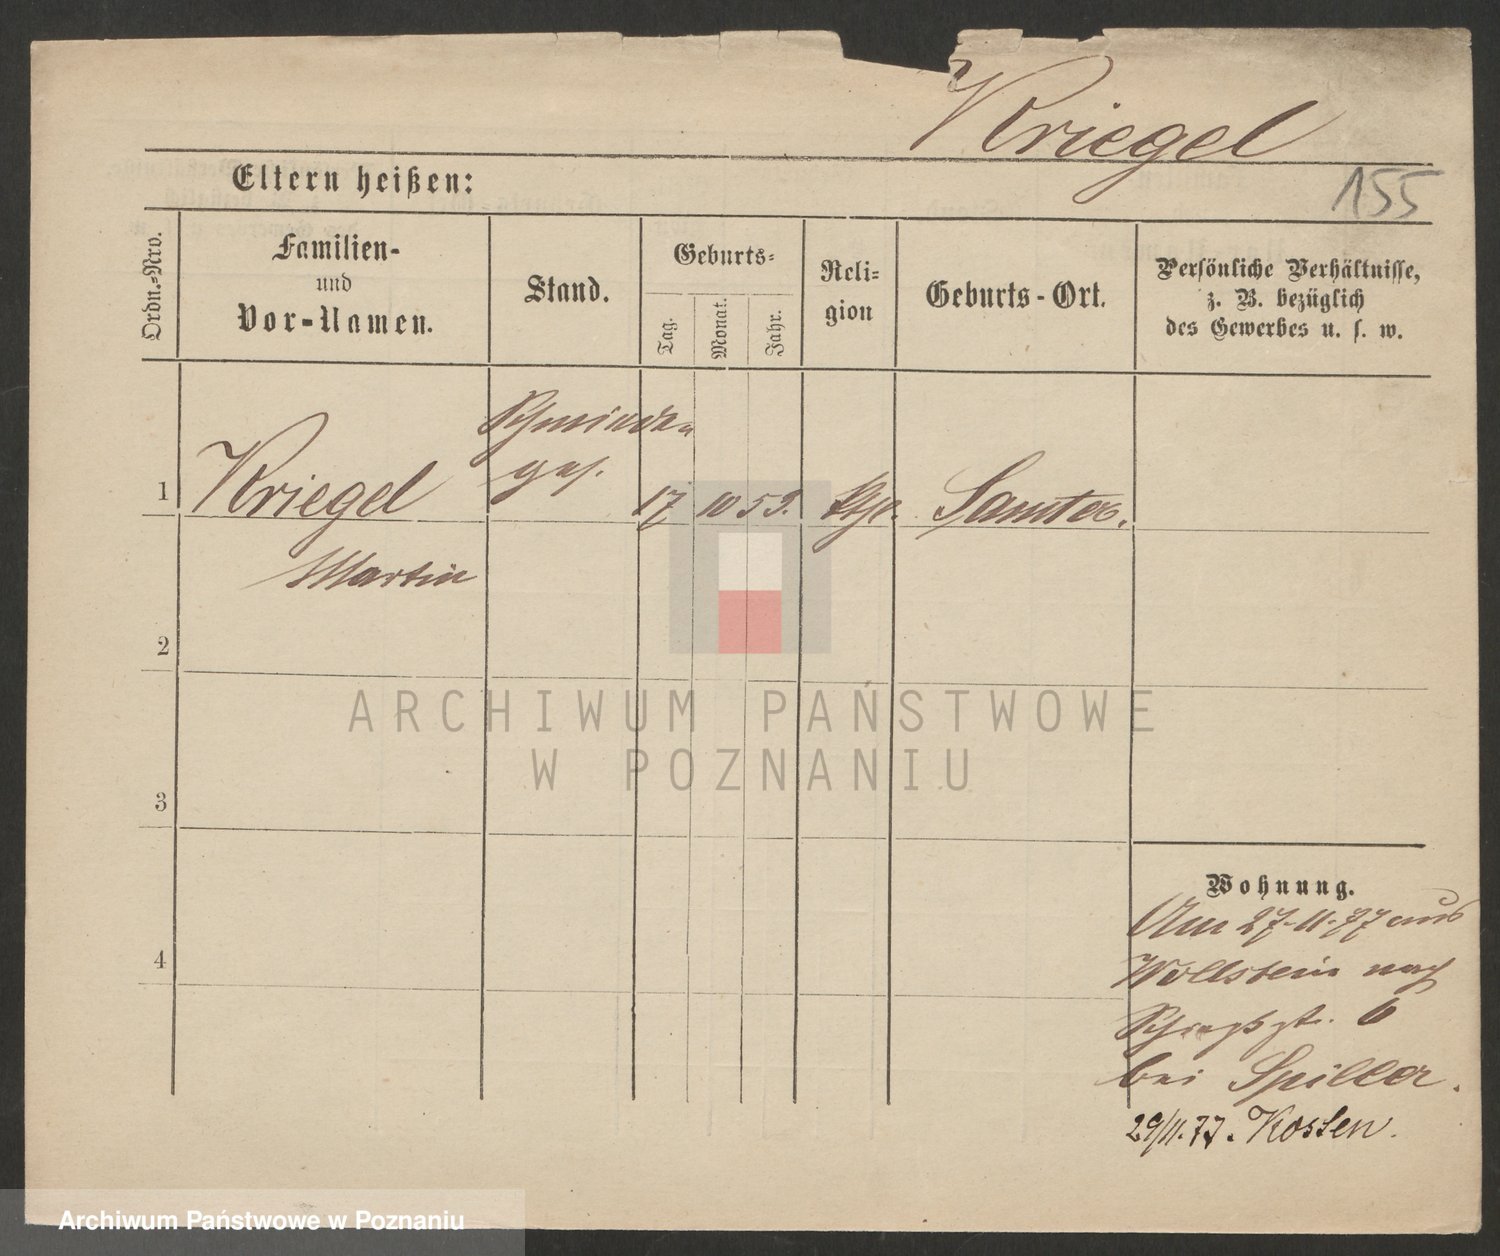 Kriegel
155
Eltern heißen:
Ordn.-Nro.
Familien-
und
Vor-Namen.
Stand.
Geburts-
Tag.
Monat.
Jahr.
Reli-
gion
Geburts-Ort.
Persönliche Verhältnisse,
z. B. bezüglich
des Gewerbes u. s. w.
1
Kriegel
Martin
ges.
17 10 53.
kth.
Samter.
2
3
4
Wohnung.
Am 27-11-77 aus
Wollstein nach
6
bei Spiller.
29/11.77. Kosten.
ARCHIWUM PAŃSTWOWE
W POZNANIU
Archiwum Państwowe w Poznaniu